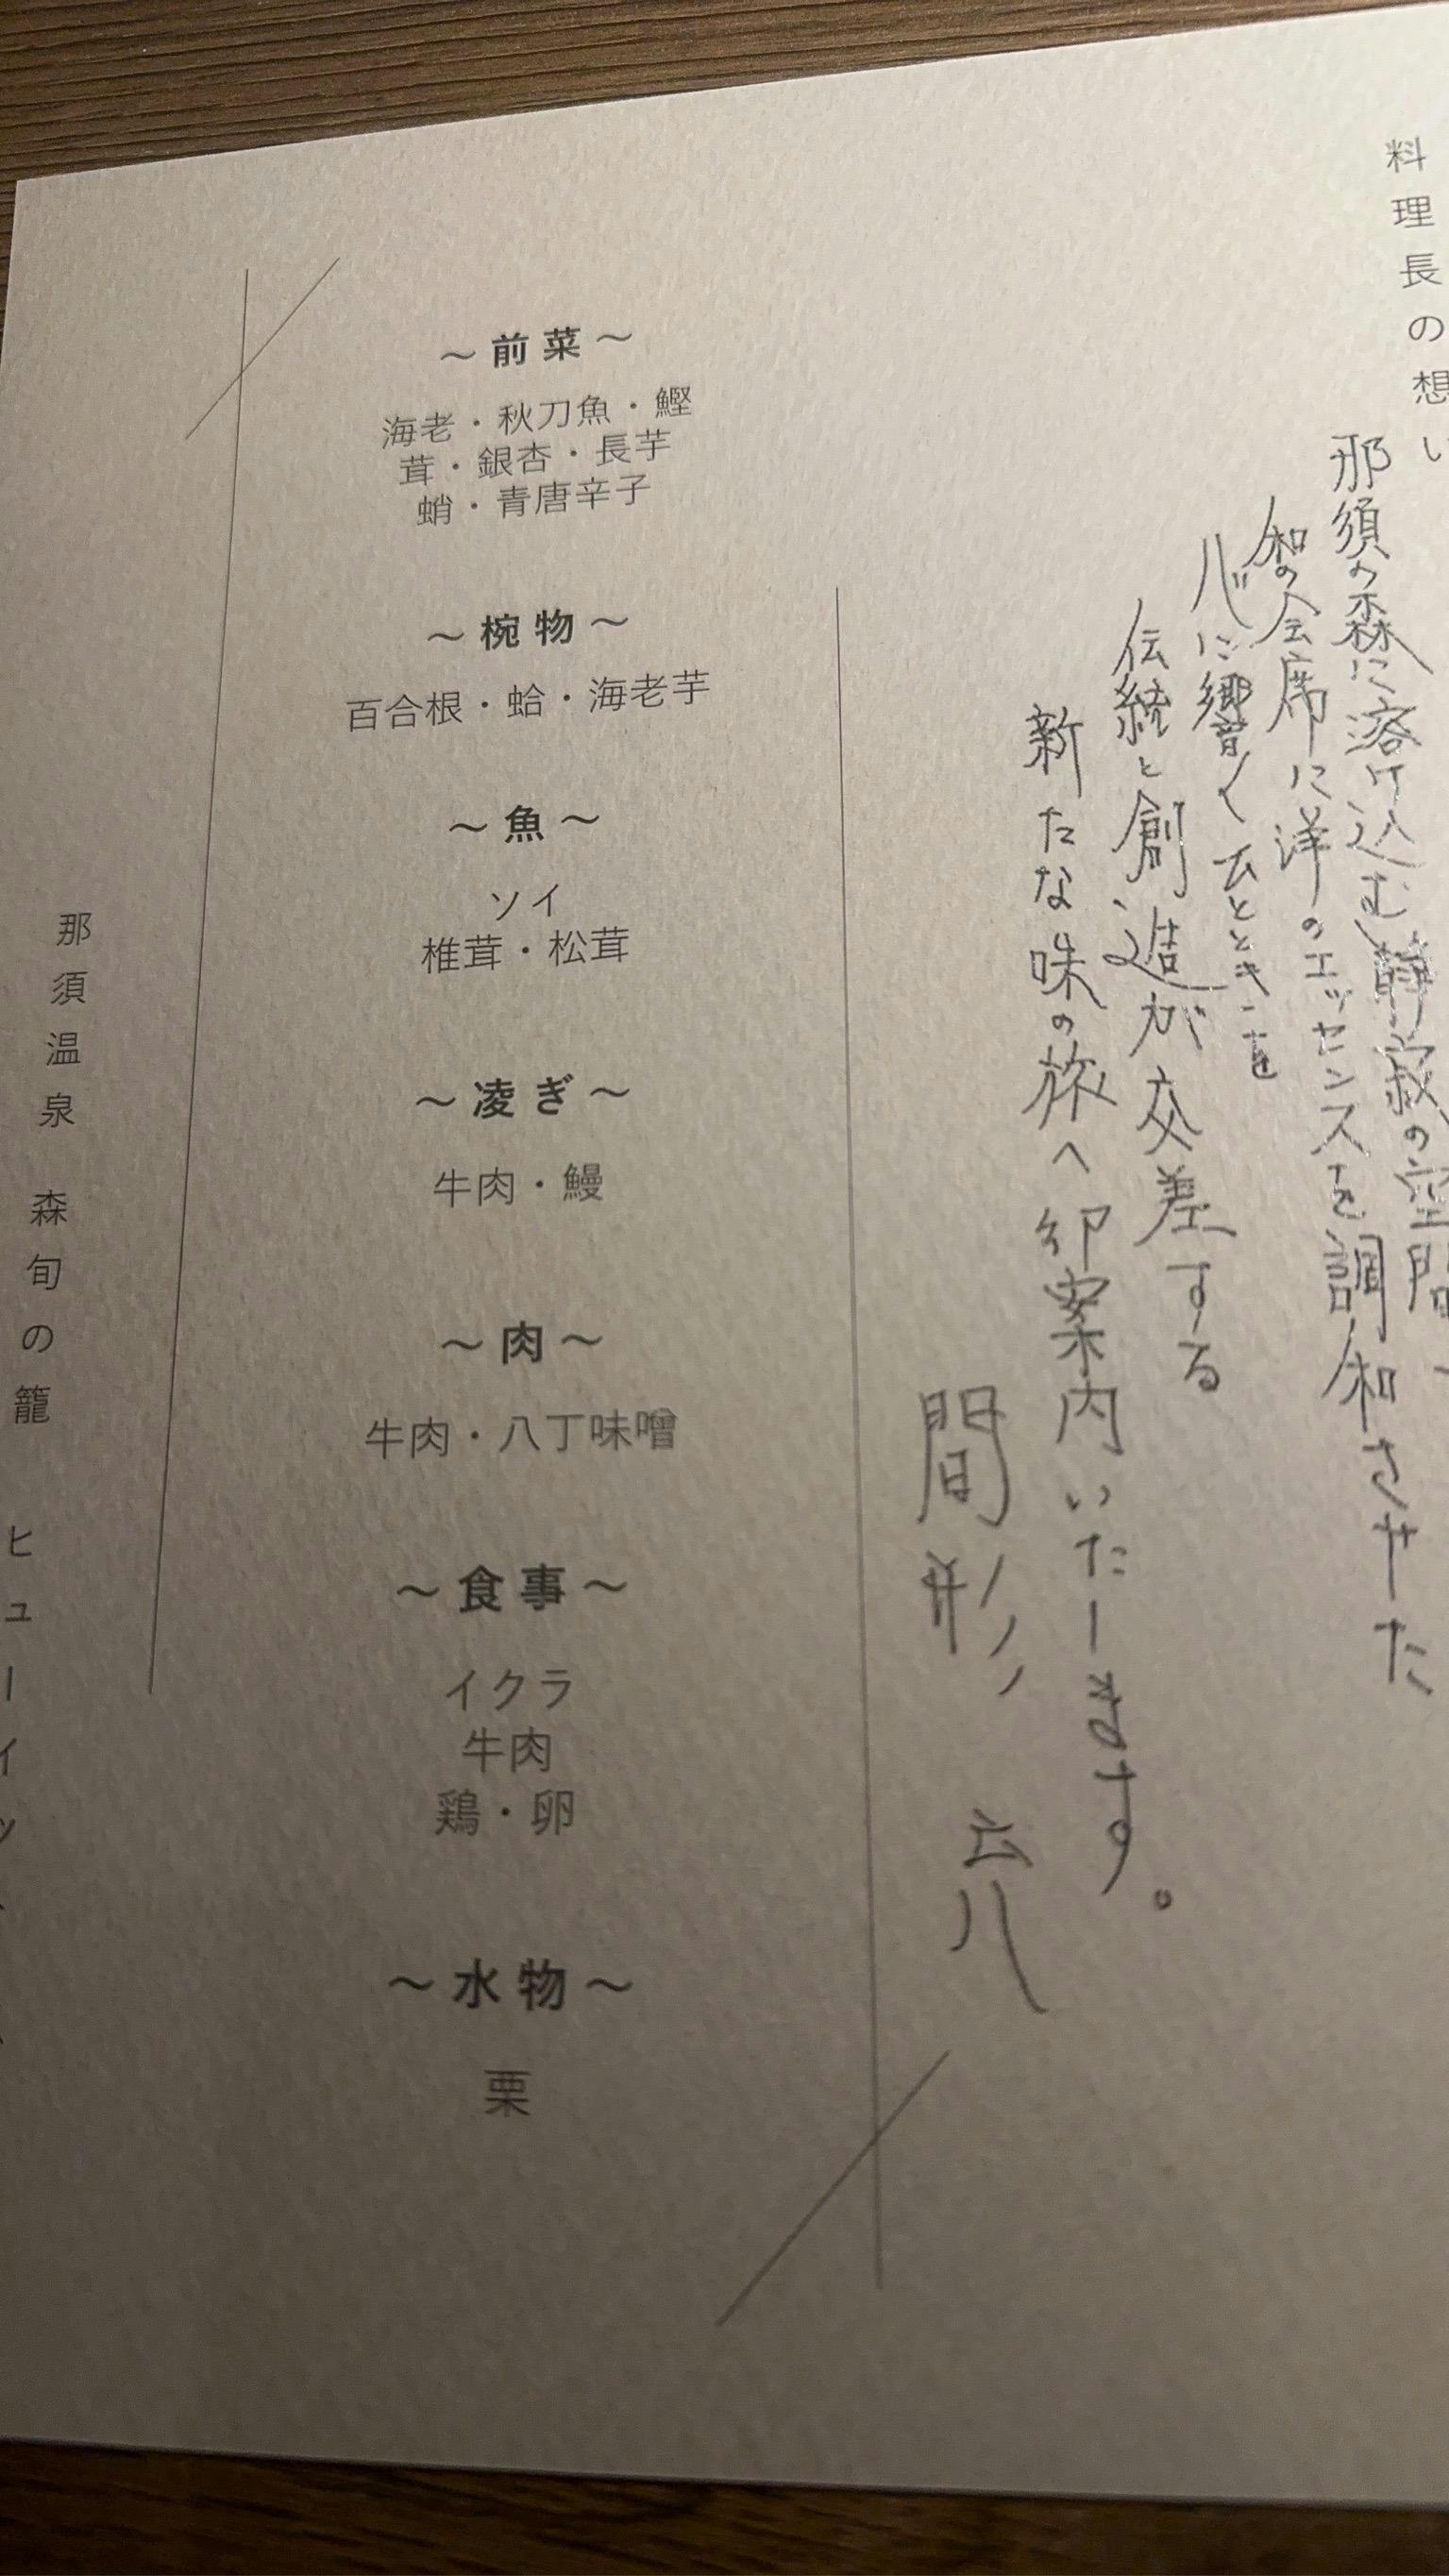 料理長の想い
那須の森に溶け込む静寂の空間で
和の会席に洋のエッセンスを調和させた
心に響くひとときを
伝統と創造が交差する
新たな味の旅へ御案内いたします。
間形
〜前菜〜
海老・秋刀魚・鰹
茸・銀杏・長芋
蛸・青唐辛子
〜椀物〜
百合根・蛤・海老芋
〜魚〜
ソイ
椎茸・松茸
〜凌ぎ〜
牛肉・鰻
〜肉〜
牛肉・八丁味噌
〜食事〜
イクラ
牛肉
鶏・卵
〜水物〜
栗
那須温泉 森旬の籠 ヒューイッ